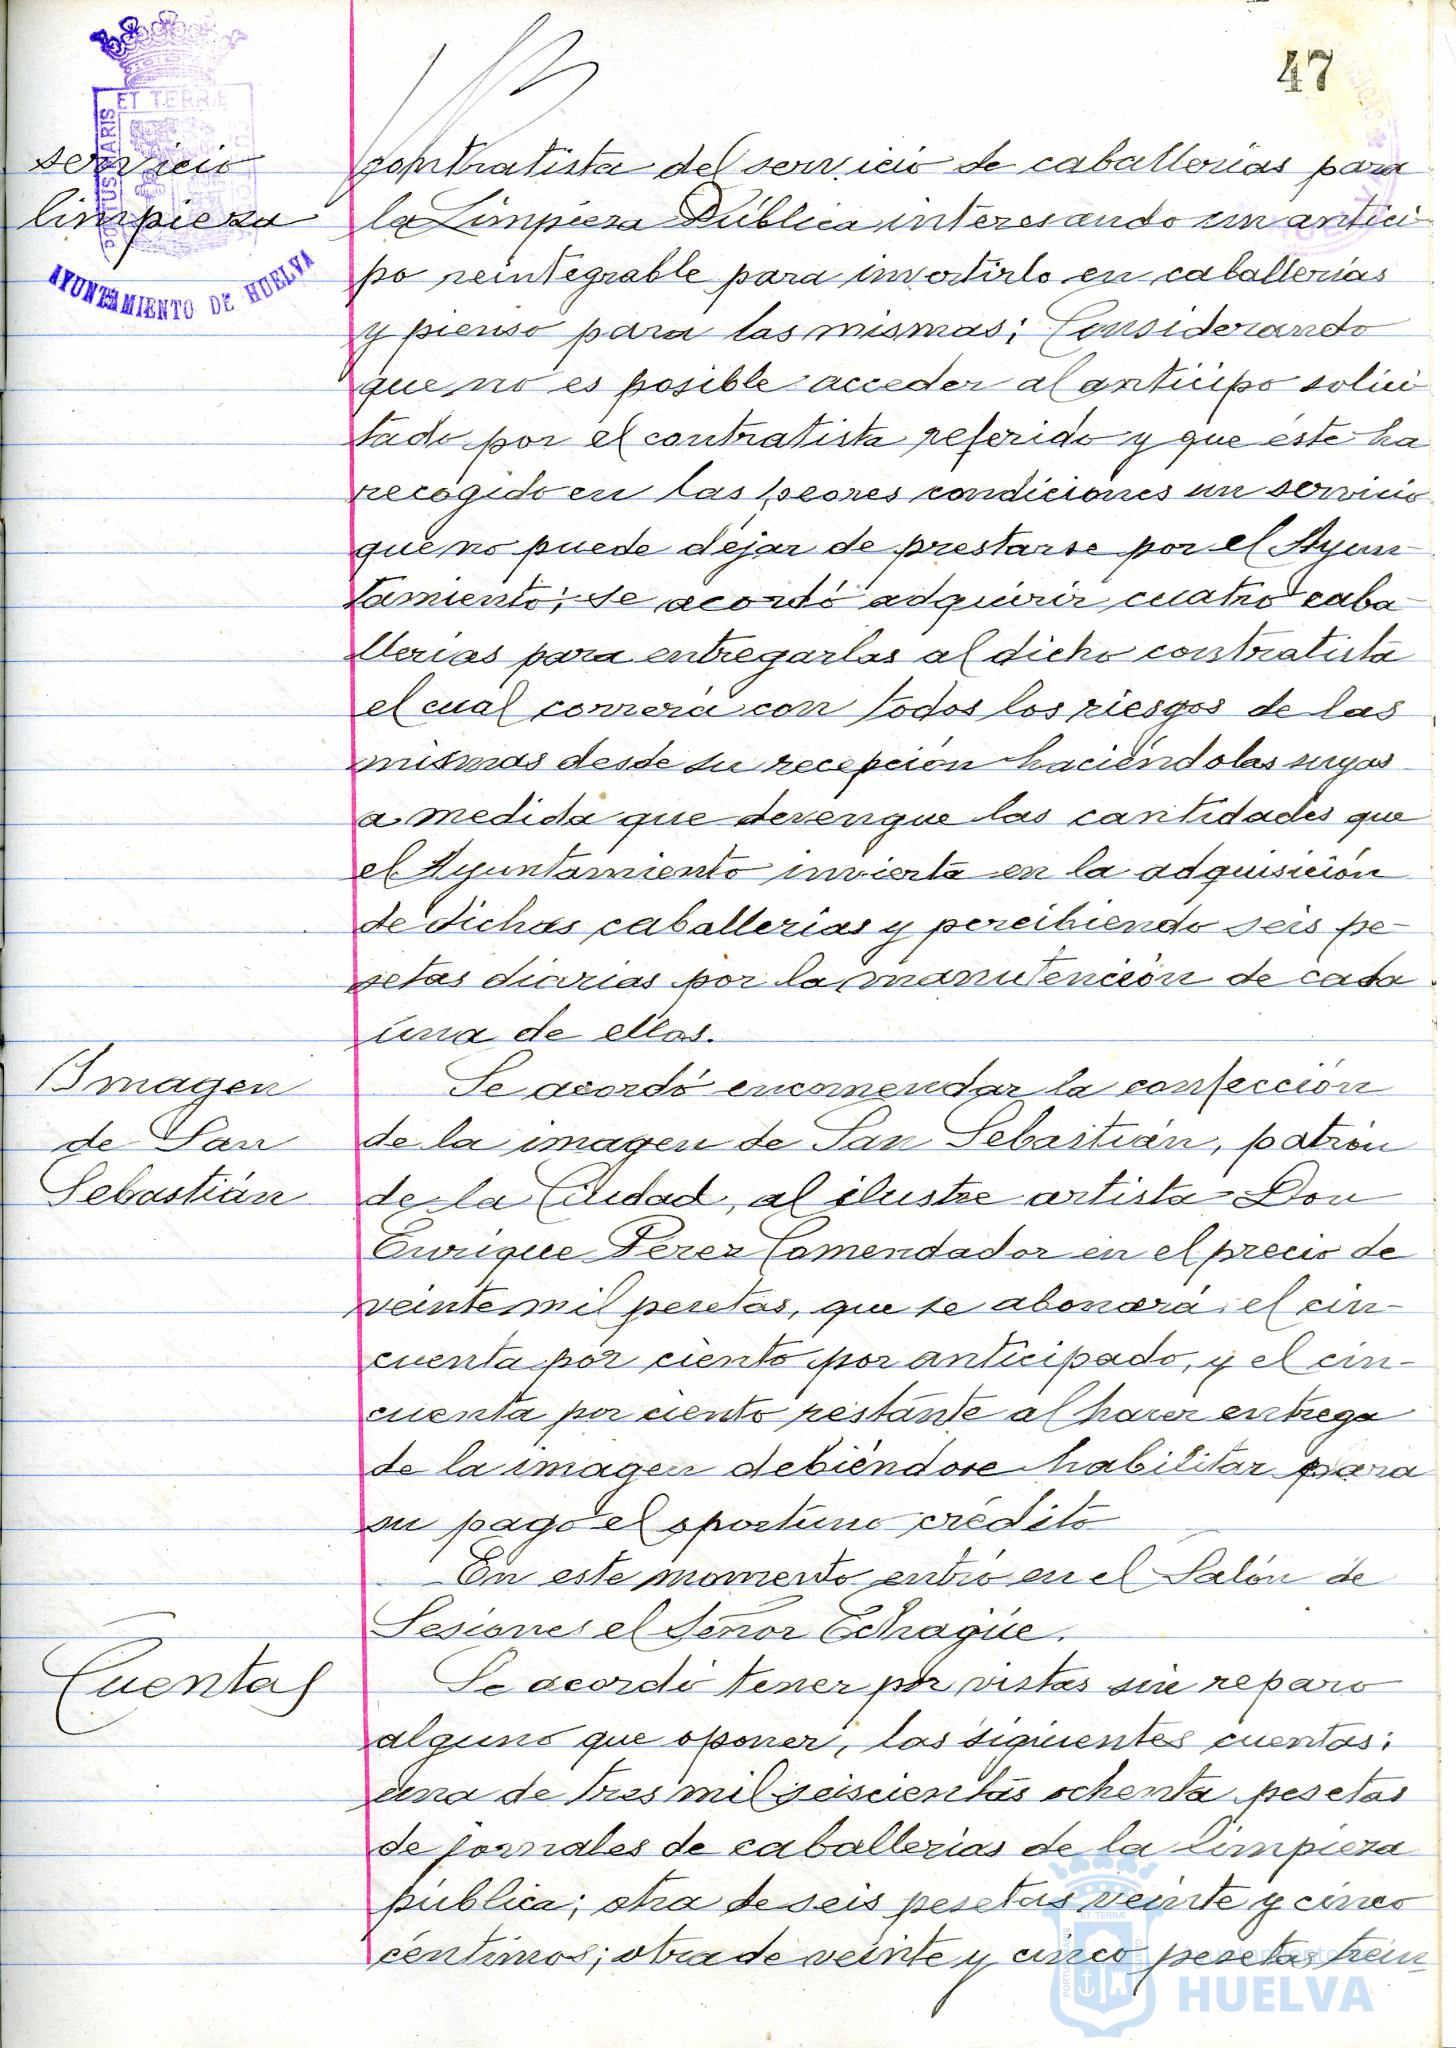 47
ET TERRÆ
PORTUS MARIS
AYUNTAMIENTO DE HUELVA
servicio
limpieza
contratista del servicio de caballerías para
la Limpieza Pública interesando un antici-
po reintegrable para invertirlo en caballerías
y pienso para las mismas; Considerando
que no es posible acceder al anticipo solici
tado por el contratista referido y que éste ha
recogido en las peores condiciones un servicio
que no puede dejar de prestarse por el Ayun-
tamiento; se acordó adquirir cuatro caba-
llerías para entregarlas al dicho contratista
el cual correrá con todos los riesgos de las
mismas desde su recepción haciéndolas suyas
a medida que devengue las cantidades que
el Ayuntamiento invierta en la adquisición
de dichas caballerías y percibiendo seis pe-
setas diarias por la manutención de cada
una de ellas.
Imagen
de San
Sebastián
Se acordó encomendar la confección
de la imagen de San Sebastián, patrón
de la Ciudad, al ilustre artista Don
Enrique Pérez Comendador en el precio de
veinte mil pesetas, que se abonará el cin-
cuenta por ciento por anticipado, y el cin-
cuenta por ciento restante al hacer entrega
de la imagen debiéndose habilitar para
su pago el oportuno crédito
En este momento entró en el Salón de
Sesiones el Señor Echagüe.
Cuentas
Se acordó tener por vistas sin reparo
alguno que oponer, las siguientes cuentas:
una de tres mil seiscientas ochenta pesetas
de jornales de caballerías de la limpieza
pública; otra de seis pesetas veinte y cinco
céntimos; otra de veinte y cinco pesetas trein-
HUELVA